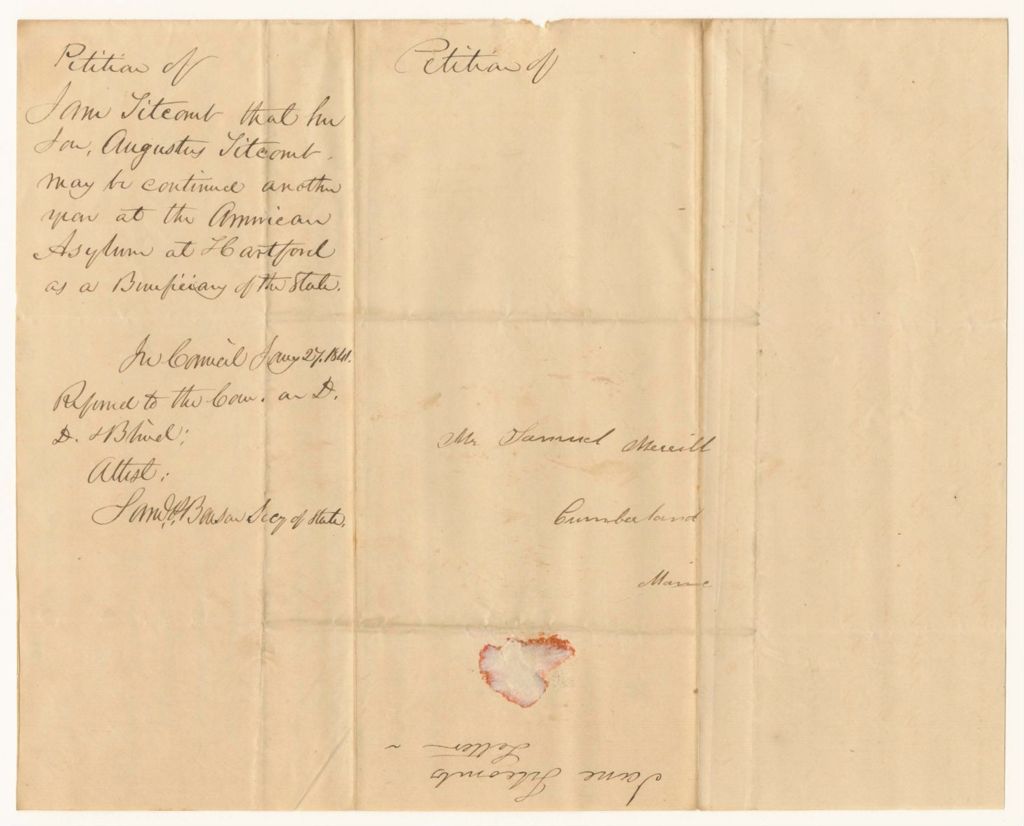 Petition of
Jane Titcomb that her
Son, Augustus Titcomb.
may be continued another
year at the American
Asylum at Hartford
as a Beneficiary of the State.
In Council Jany 27. 1841.
Referred to the Com. on D.
D. & Blind;
Attest:
Saml. P. Benson Secy of State.
Petition of
Mr Samuel Merrill
Cumberland
Maine
Jane Titcombs
Letter